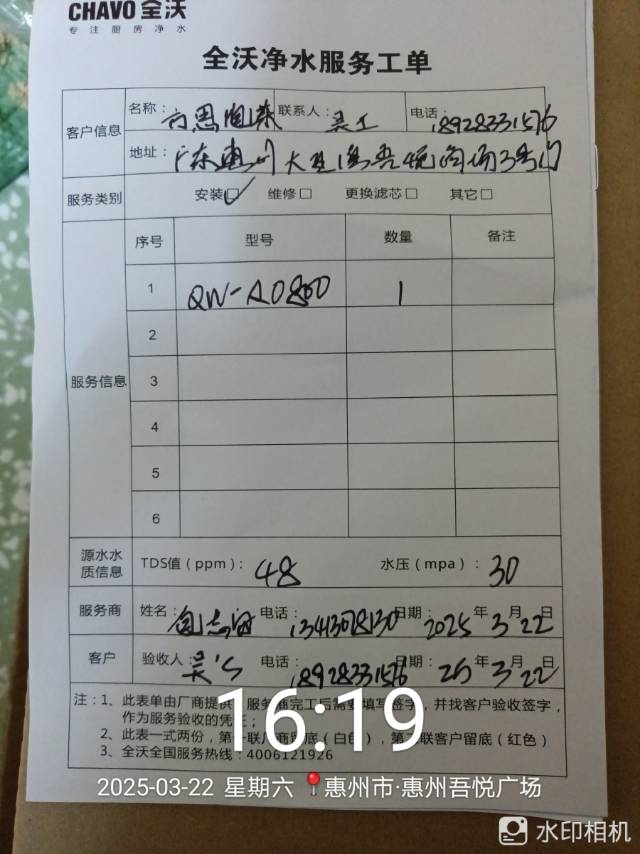 CHAVO 全沃
专注厨房净水
全沃净水服务工单
客户信息
名称: 联系人: 吴工 电话: 18928331576
地址: 广东惠州大亚湾吾悦商场3号门
服务类别 安装☑ 维修□ 更换滤芯□ 其它□
服务信息
序号 型号 数量 备注
1 QW-A0800 1
2
3
4
5
6
源水水质信息 TDS值（ppm）: 48 水压（mpa）: 30
服务商 姓名: 电话: 13413028130 日期: 2025年3月22日
客户 验收人: 吴's 电话: 18928331576 日期: 25年3月22日
注: 1、此表单由厂商提供，服务商完工后需要填写签字，并找客户验收签字，
作为服务验收的凭证；
2、此表一式两份，第一联厂商留底（白色），第二联客户留底（红色）
3、全沃全国服务热线: 4006121926
16:19
2025-03-22 星期六 惠州市·惠州吾悦广场
水印相机